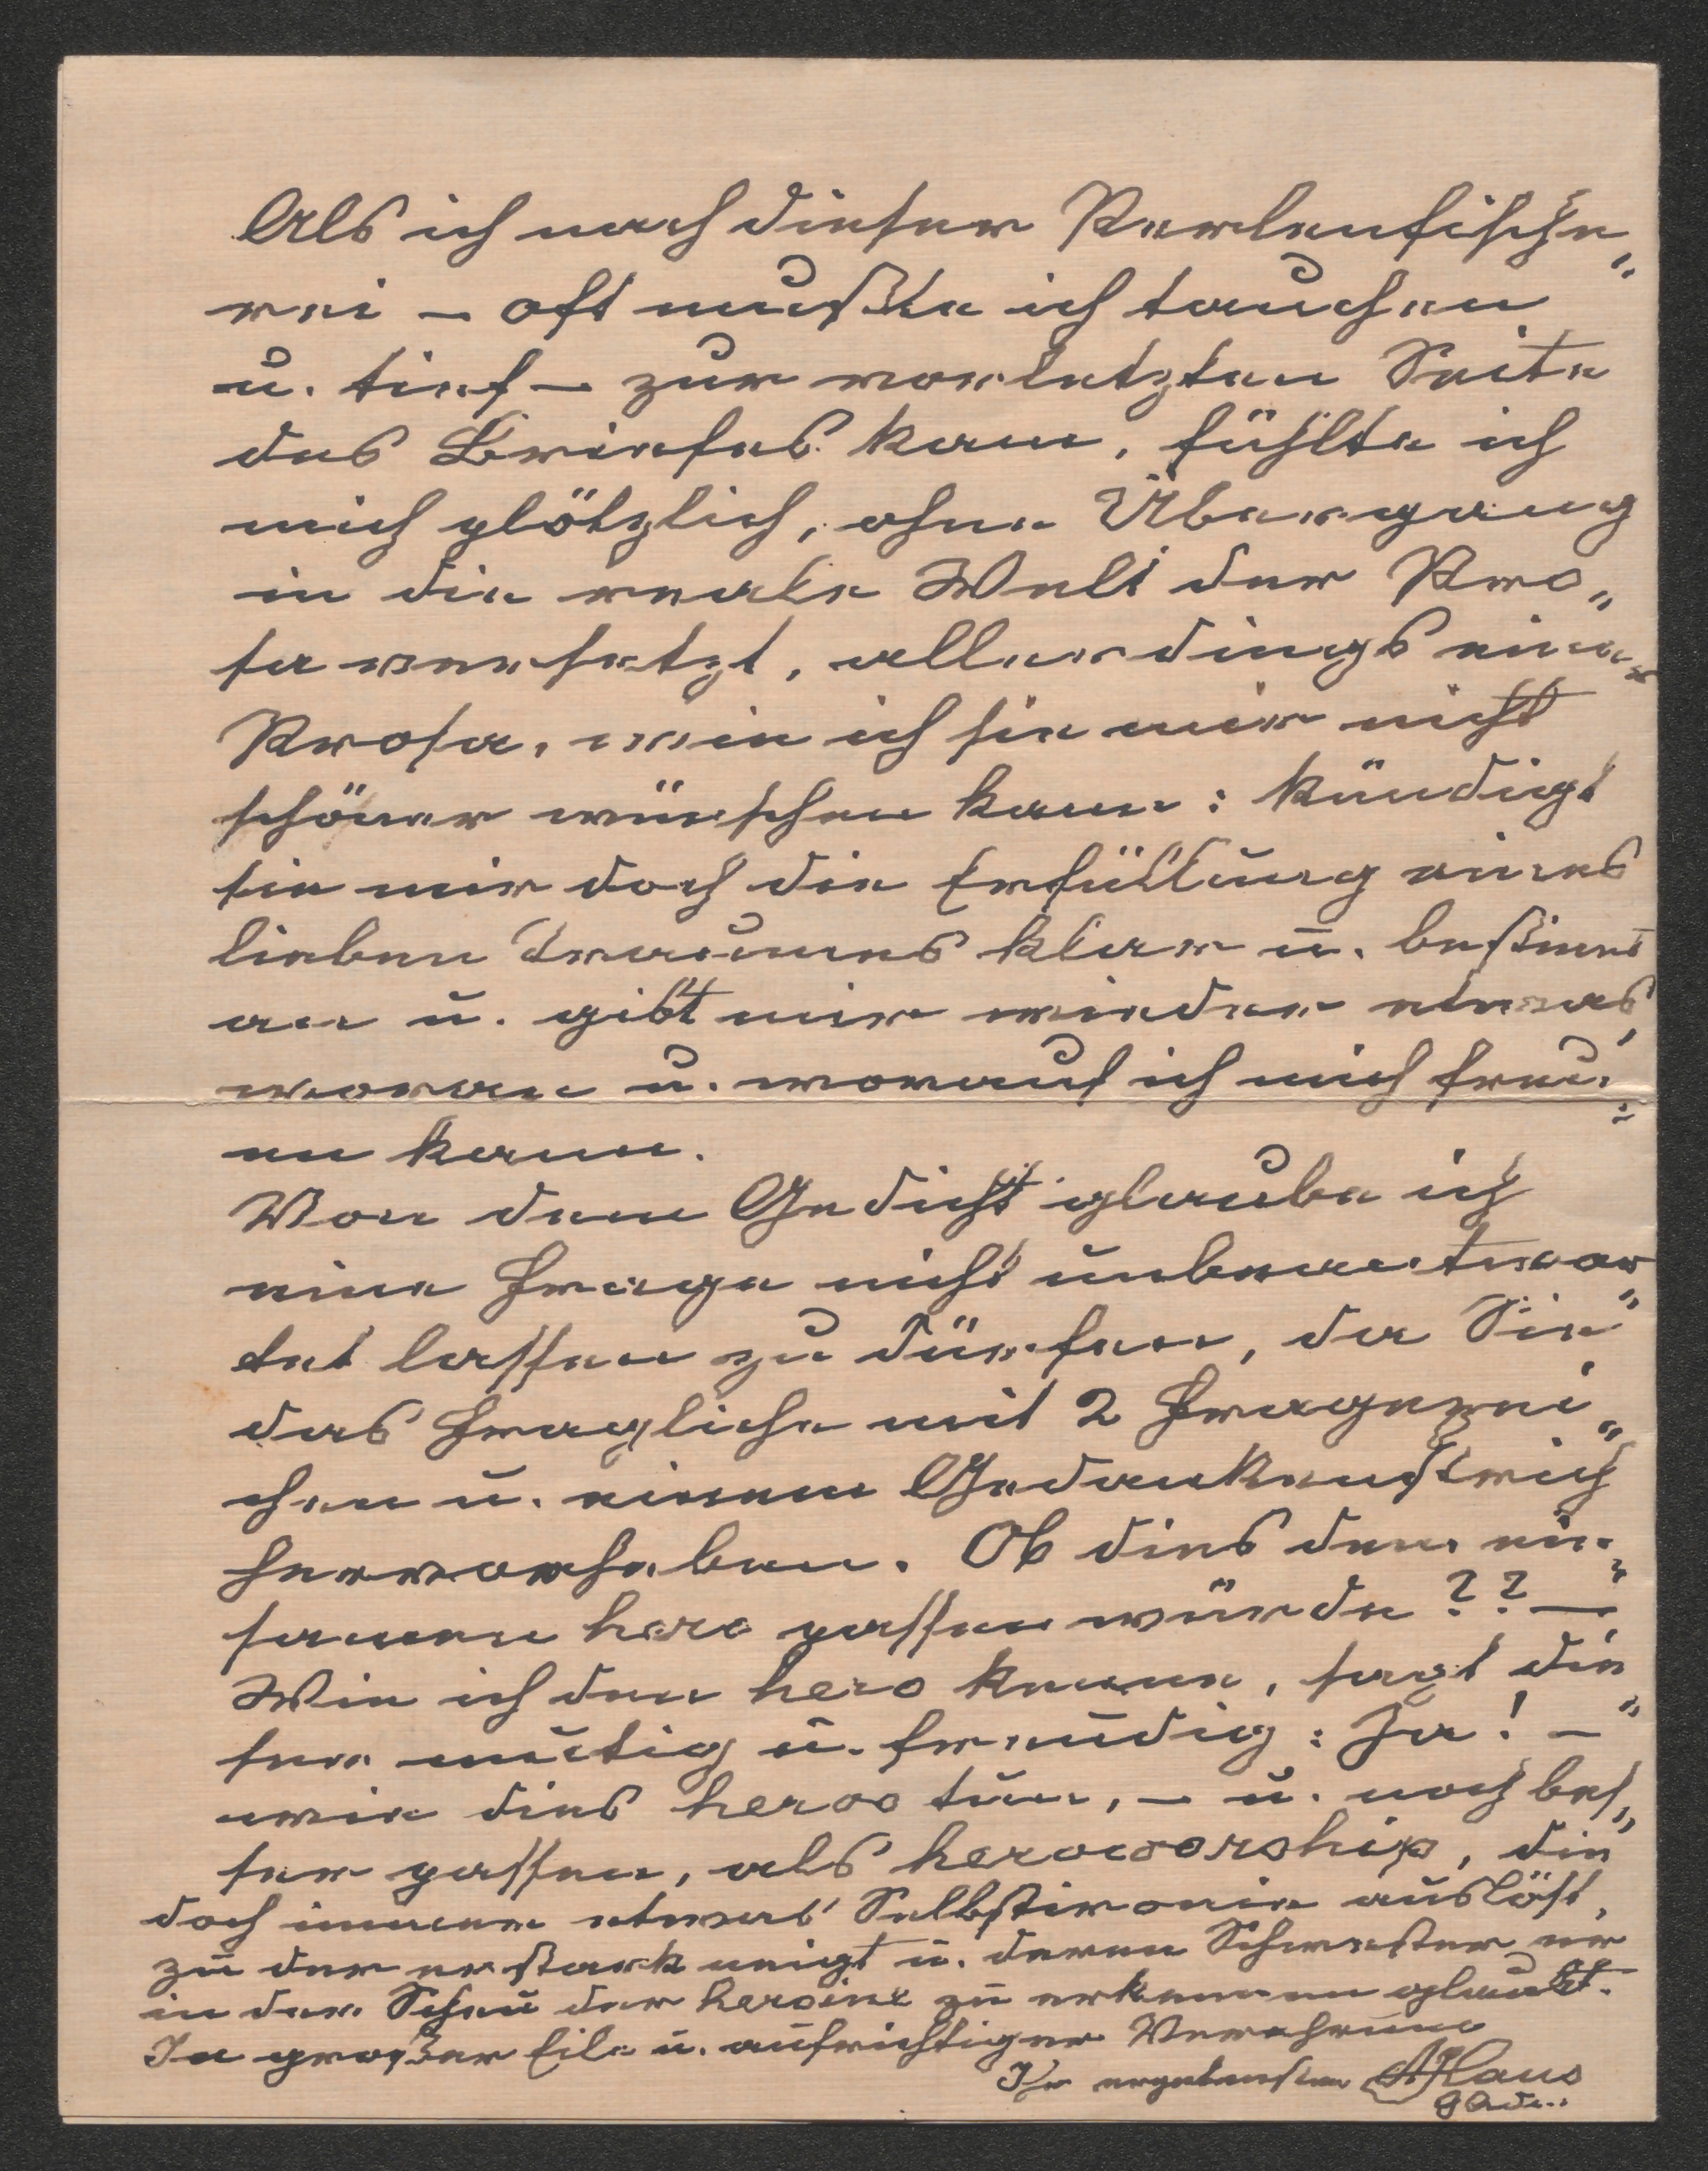 Als ich nach dieser Perlenfische„
rei – oft mußte ich tauchen
u. tief – zur vorletzten Seite
des Briefes kam, fühlte ich
mich plötzlich, ohne Übergang
in die reale Welt der Pro„
sa versetzt, allerdings einer
Prosa, wie ich sie mir nicht
schöner wünschen kann: kündigt
sie mir doch die Erfüllung eines
lieben Traumes klar u. bestimmt
an u. gibt mir wieder etwas,
woran u. worauf ich mich freu„
en kann.
Von dem Gedicht glaube ich
eine Frage nicht unbeantwor„
tet lassen zu dürfen, da Sie
das Fragliche mit 2 Fragezei„
chen u. einem Gedankenstrich
hervorheben. Ob dies dem ein„
samen hero passen würde?? –
Wie ich den hero kenne, sagt die„
ser mutig u. freudig: Ja! –
wie dies heroo tun, – u. noch bes„
ser passen, als heroworship, die
doch immer etwas Selbstironie auslöst,
zu der er stark neigt u. deren Schwester er
in der Scheu der heroine zu erkennen glaubt.
In großer Eile u. aufrichtiger Verehrung
Ihr ergebenster AHaus